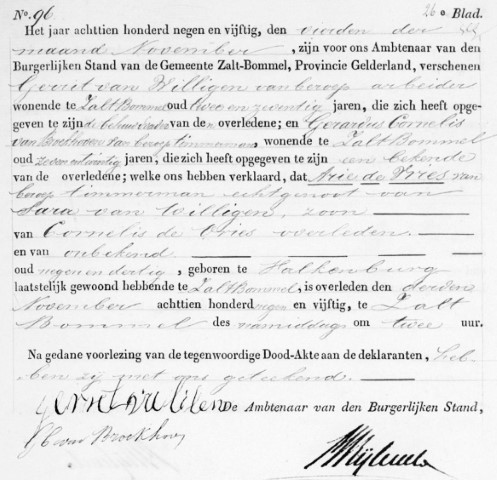 No. 96 26e Blad.
Het jaar achttien honderd negen en vijftig, den vierden der
maand November, zijn voor ons Ambtenaar van den
Burgerlijken Stand van de Gemeente Zalt-Bommel, Provincie Gelderland, verschenen
Gerrit van Willigen van beroep arbeider
wonende te Zalt Bommel oud twee en zeventig jaren, die zich heeft opge-
geven te zijn de behuwdvader van de n overledene; en Gerardus Cornelis
van Broekhoven van beroep timmerman, wonende te Zalt Bommel
oud zeven en twintig jaren, die zich heeft opgegeven te zijn een bekende
van de overledene; welke ons hebben verklaard, dat Arie de Vries van
beroep timmerman echtgenoot van
Sara van Willigen, zoon
van Cornelis de Vries overleden.
en van onbekend
oud negen en dertig, geboren te Valkenburg
laatstelijk gewoond hebbende te Zalt Bommel, is overleden den derden
November achttien honderd negen en vijftig, te Zalt
Bommel des namiddags om twee uur.
Na gedane voorlezing van de tegenwoordige Dood-Akte aan de deklaranten, heb-
ben zij met ons geteekend.
De Ambtenaar van den Burgerlijken Stand,
van Broekhoven